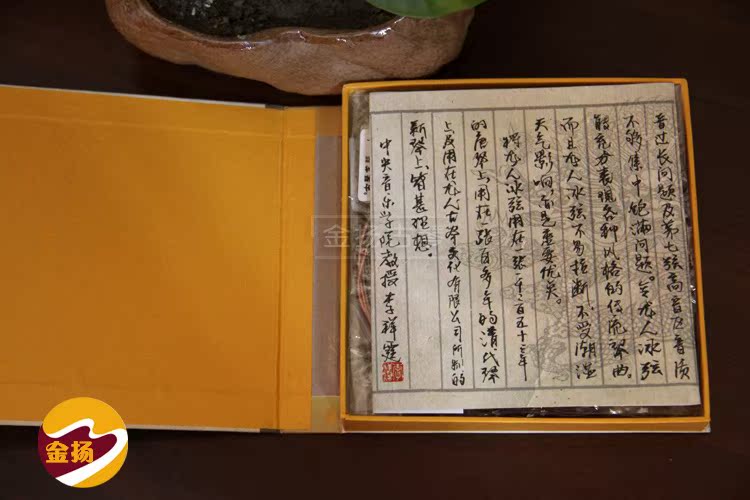 音过长问题及第七弦高音区音质
不够集中饱满问题。今龙人冰弦
能充分表现各种风格的传统琴曲
而且龙人冰弦不易拉断、不受潮湿
天气影响，首是重要优矣。
将龙人冰弦用在一张一千二百五十三年
的唐琴上用在一张百多年的清代琴
上及用在龙人古琴文化有限公司所制的
新琴上皆甚理想。
中央音乐学院教授李祥霆
金扬
金扬